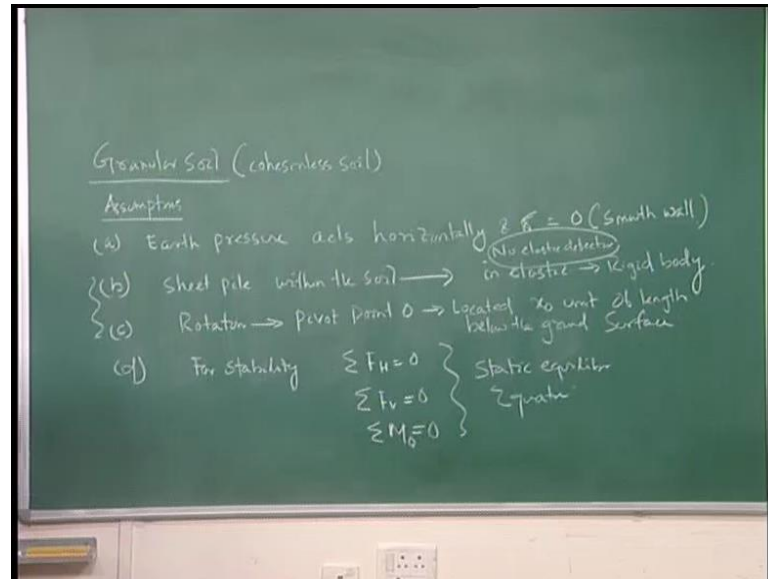 Granular Soil (cohesionless soil)
Assumptions
(a) Earth pressure acts horizontally & δ = 0 (smooth wall)
(No elastic deflection)
(b) Sheet pile within the soil → inelastic → Rigid body.
(c) Rotation → pivot point O → Located x₀ unit of length
below the ground Surface
(d) For stability ΣF_H = 0 } Static equilibr
ΣF_V = 0 Equatn
ΣM_O = 0